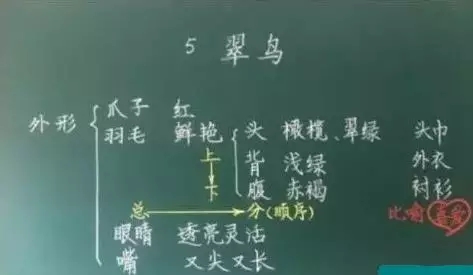 5 翠鸟
爪子 红
外形 羽毛 鲜艳 头 橄榄、翠绿 头巾
上 背 浅绿 外衣
下 腹 赤褐 衬衫
总 分(顺序) 比喻 喜爱
眼睛 透亮灵活
嘴 又尖又长